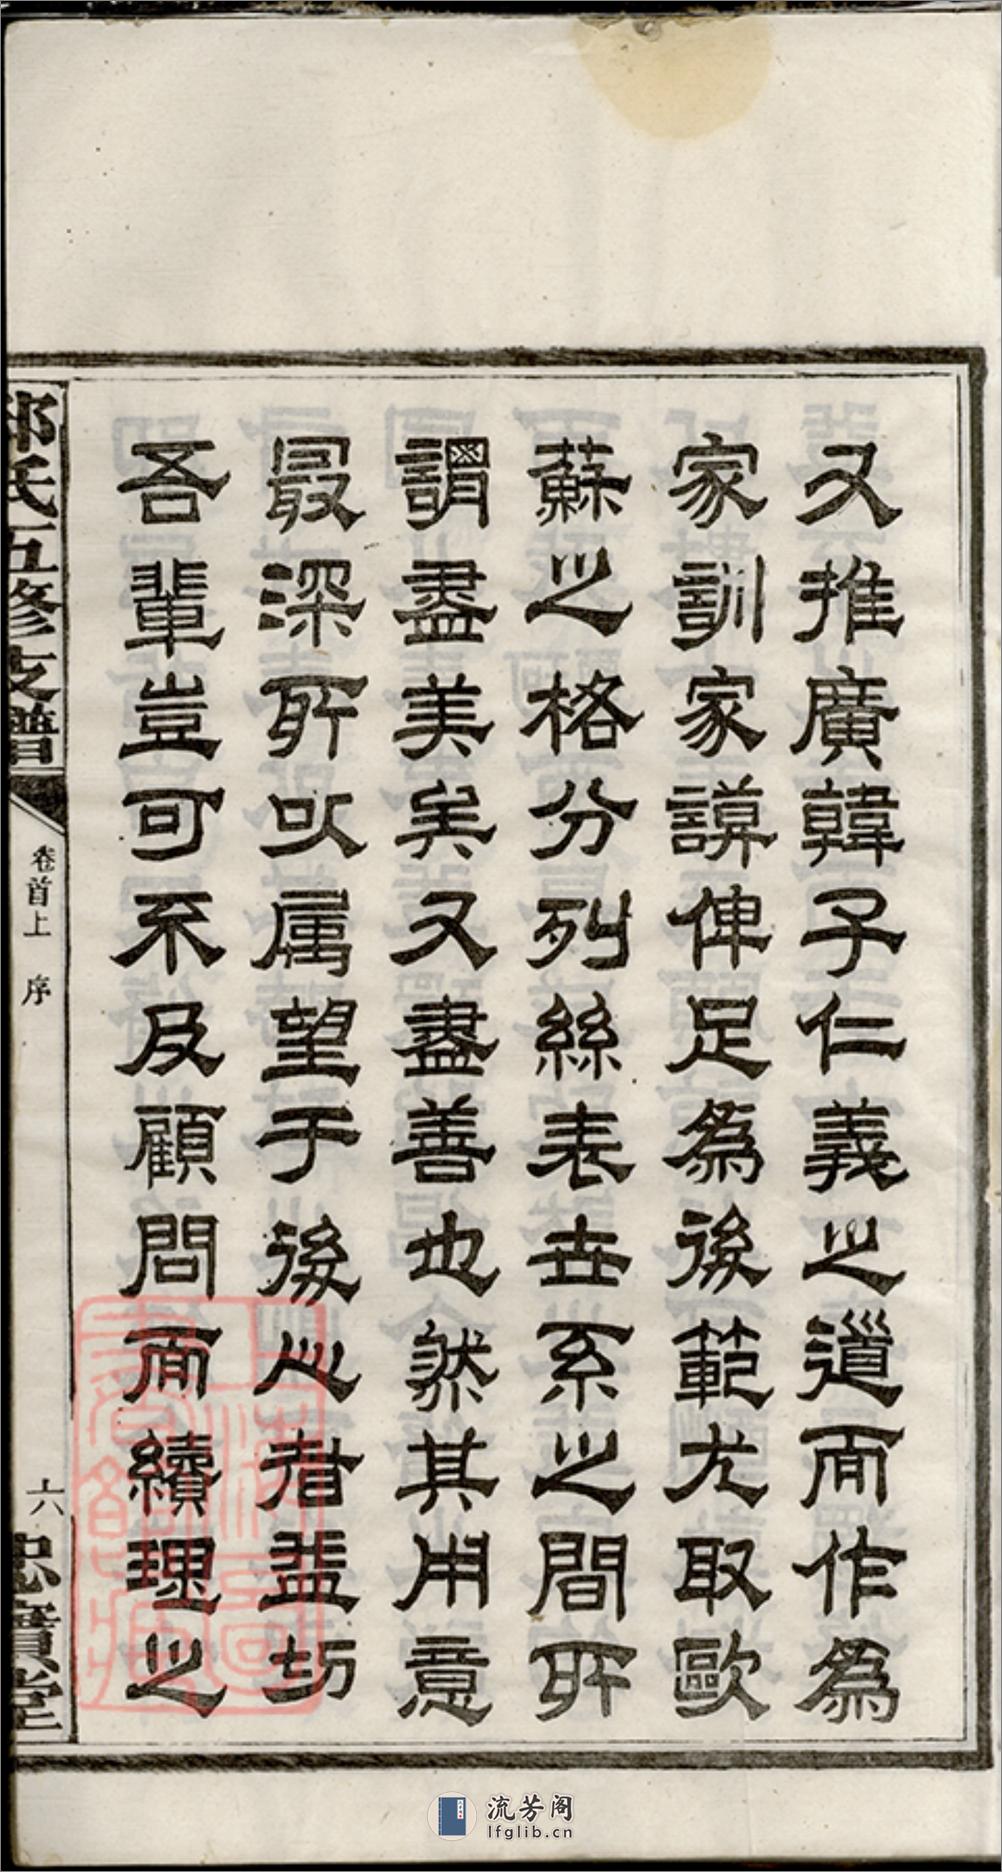 又推廣韓子仁義之道而作為
家訓家譜俾足為後範尤取歐
蘇之格分列絲表世系之間所
謂盡美矣又盡善也然其用意
最深所以属望于後之者益切
吾輩豈可不及顧問而續理之
氏五修支譜
卷首上 序
六
忠實堂
流芳阁
lfglib.cn